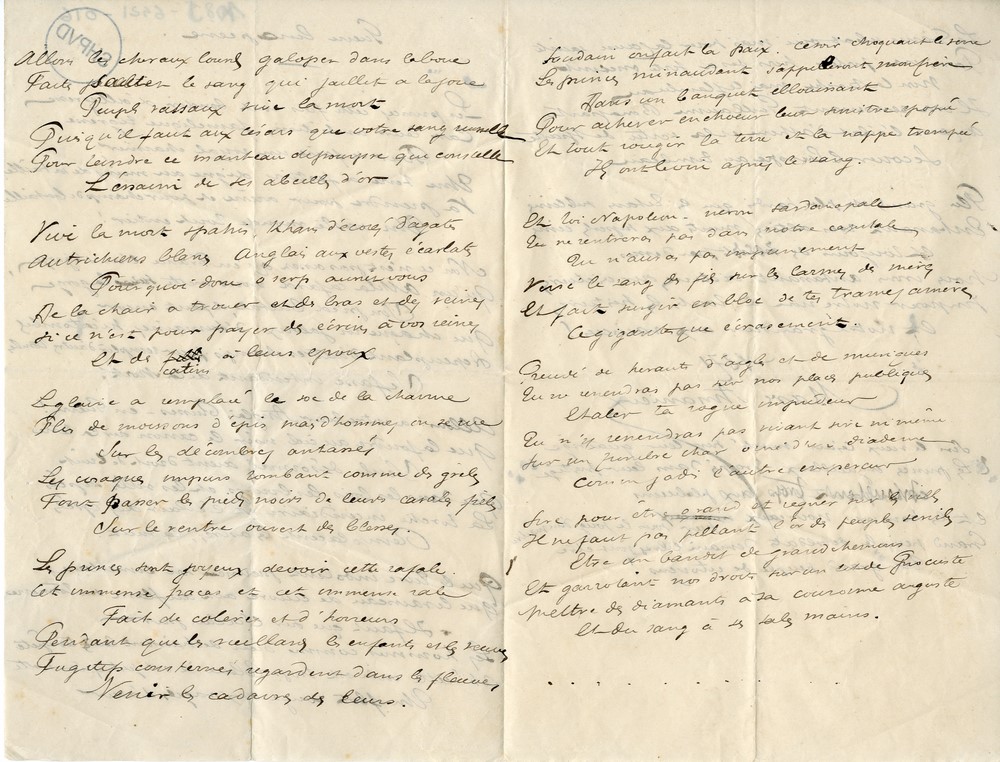 Allons les chevaux lourds galopez dans la boue
Faites sauter le sang qui jaillet a la joue
Peuples vassaux vive la mort
Puisqu'il faut aux césars que votre sang ruisselle
Pour teindre ce manteau de pourpre que constelle
L'essaim de ses abeilles d'or
Vive la mort spahis Khans d'écorés d'agats
Autrichiens blancs Anglais aux vestes écarlats
Pourquoi donc ô serfs auriez vous
De la chair a trouer et des bras et des veines
Si ce n'est pour payer des écrins à vos reines
Et des catins à leurs epoux
Le glaive a remplacé le soc de la charrue
Plus de moissons d'épis mais d'hommes on se rue
Sur les décombres entassés
Les cosaques impurs tombant comme des greles
Font passer les pieds noirs de leurs cavales greles
Sur le ventre ouvert des blessés.
Les princes sont joyeux de voir cette rafale.
Cet immense fracas et cet immense rale
Fait de colères et d'horreurs
Pendant que les vieillards les enfants et les veuves
Fugitifs consternés regardent dans les fleuves
Venir les cadavres des leurs.
Soudain on fait la paix. ce soir choquant le verre
Les princes minaudant s'appelleront mon frère
Dans un banquet eblouissant
Pour achever en choeur leur sinistre épopée
Et tout rougir la terre et la nappe trempée
Ils ont le vin après le sang.
Et toi Napoleon - neron sardanapale
Tu ne rentreras pas dans notre capitale
Tu n'auras pas impunement
Versé le sang des fils sur les larmes des mères
Et fait surgir en bloc de tes trames amères
Ce gigantesque écrasement.
Précédé de herauts d'aigles et de musiques
Tu ne viendras pas sur nos places publiques
Etaler ta rogue impudeur
Tu n'y reviendras pas vivant sire ni même
Sur un funèbre char orné d'un diademe
Comme jadis l'autre empereur
Sire pour être grand et régner sur les
Il ne faut pas pillant l'or des peuples serviles
Etre un bandit de grand chemins
Et garrotant nos droits sur un lit de Procuste
Mettre des diamants à sa couronne auguste
Et du sang à ses sales mains.
. . . . . . .